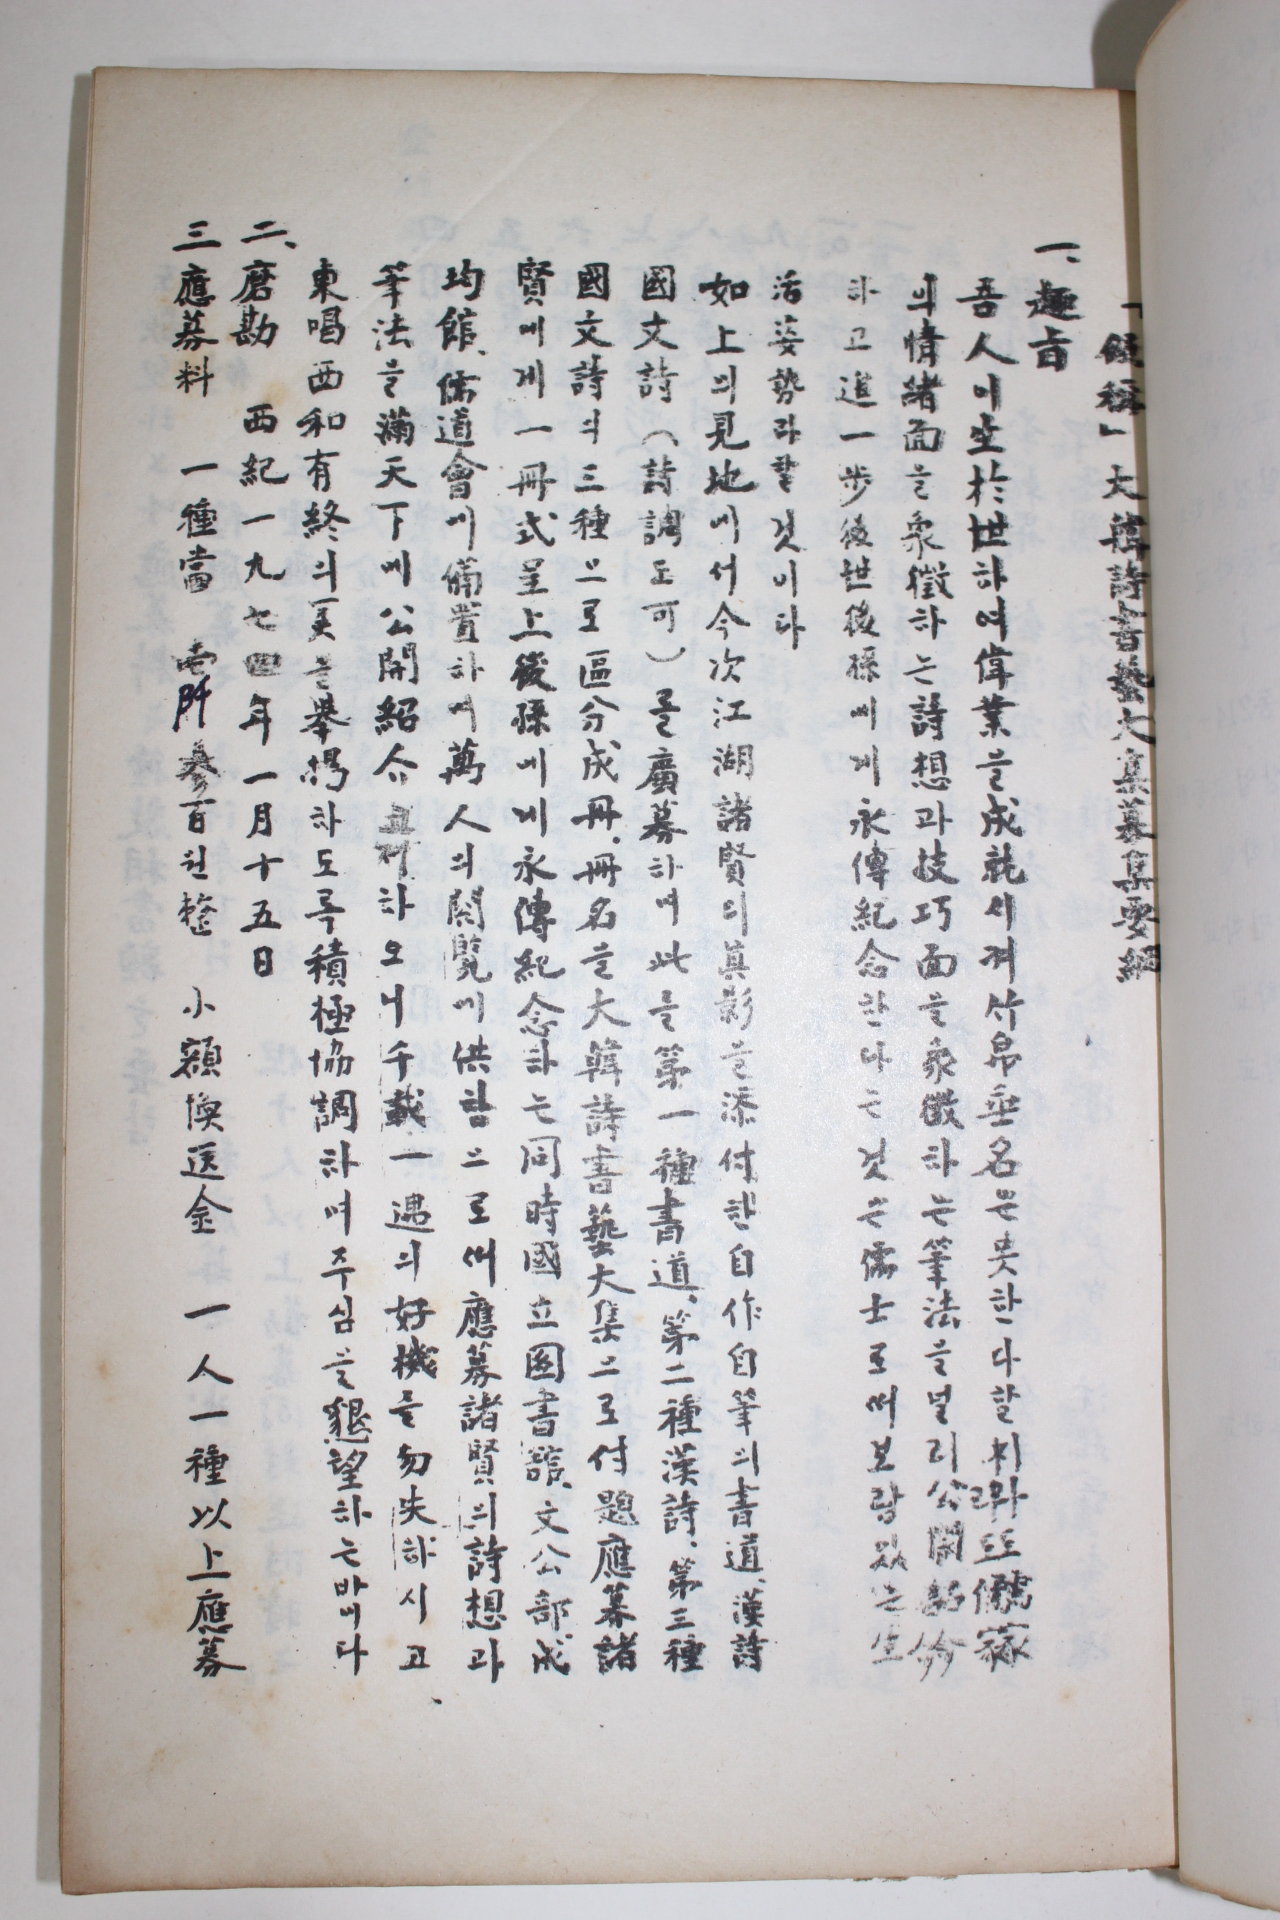 「假稱」大韓詩書藝大集募集要綱
一、趣旨
吾人이生於世하여偉業을成就시켜竹帛垂名은못한다할지라도儒家
의情緖面을象徵하는詩想과技巧面을象徵하는筆法을널리公開紹介
하고進一步後世後孫에게永傳紀念한다는것은儒士로써보람있는生
活姿勢라할것이다
如上의見地에서今次江湖諸賢의眞影을添付한自作自筆의書道、漢詩
國文詩(詩調도可)를廣募하여此를第一種書道、第二種漢詩、第三種
國文詩의三種으로區分成冊、冊名을大韓詩書藝大集으로付題應募諸
賢에게一冊式呈上後孫에게永傳紀念하는同時國立圖書館、文公部、成
均館、儒道會에備置하여萬人의閱覽에供함으로써應募諸賢의詩想과
筆法을滿天下에公開紹介코저하오니千載一遇의好機를勿失하시고
東唱西和有終의美를擧揚하도록積極協調하여주심을懇望하는바이다
二、磨勘 西紀一九七四年一月十五日
三 應募料 一種當 參百원整 小額換送金 一人一種以上應募